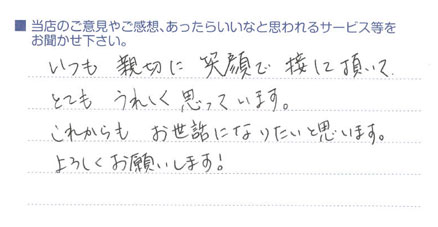 ■ 当店のご意見やご感想、あったらいいなと思われるサービス等を
お聞かせ下さい。
いつも 親切に 笑顔で 接して頂いて、
とても うれしく思っています。
これからも お世話になりたいと思います。
よろしくお願いします!